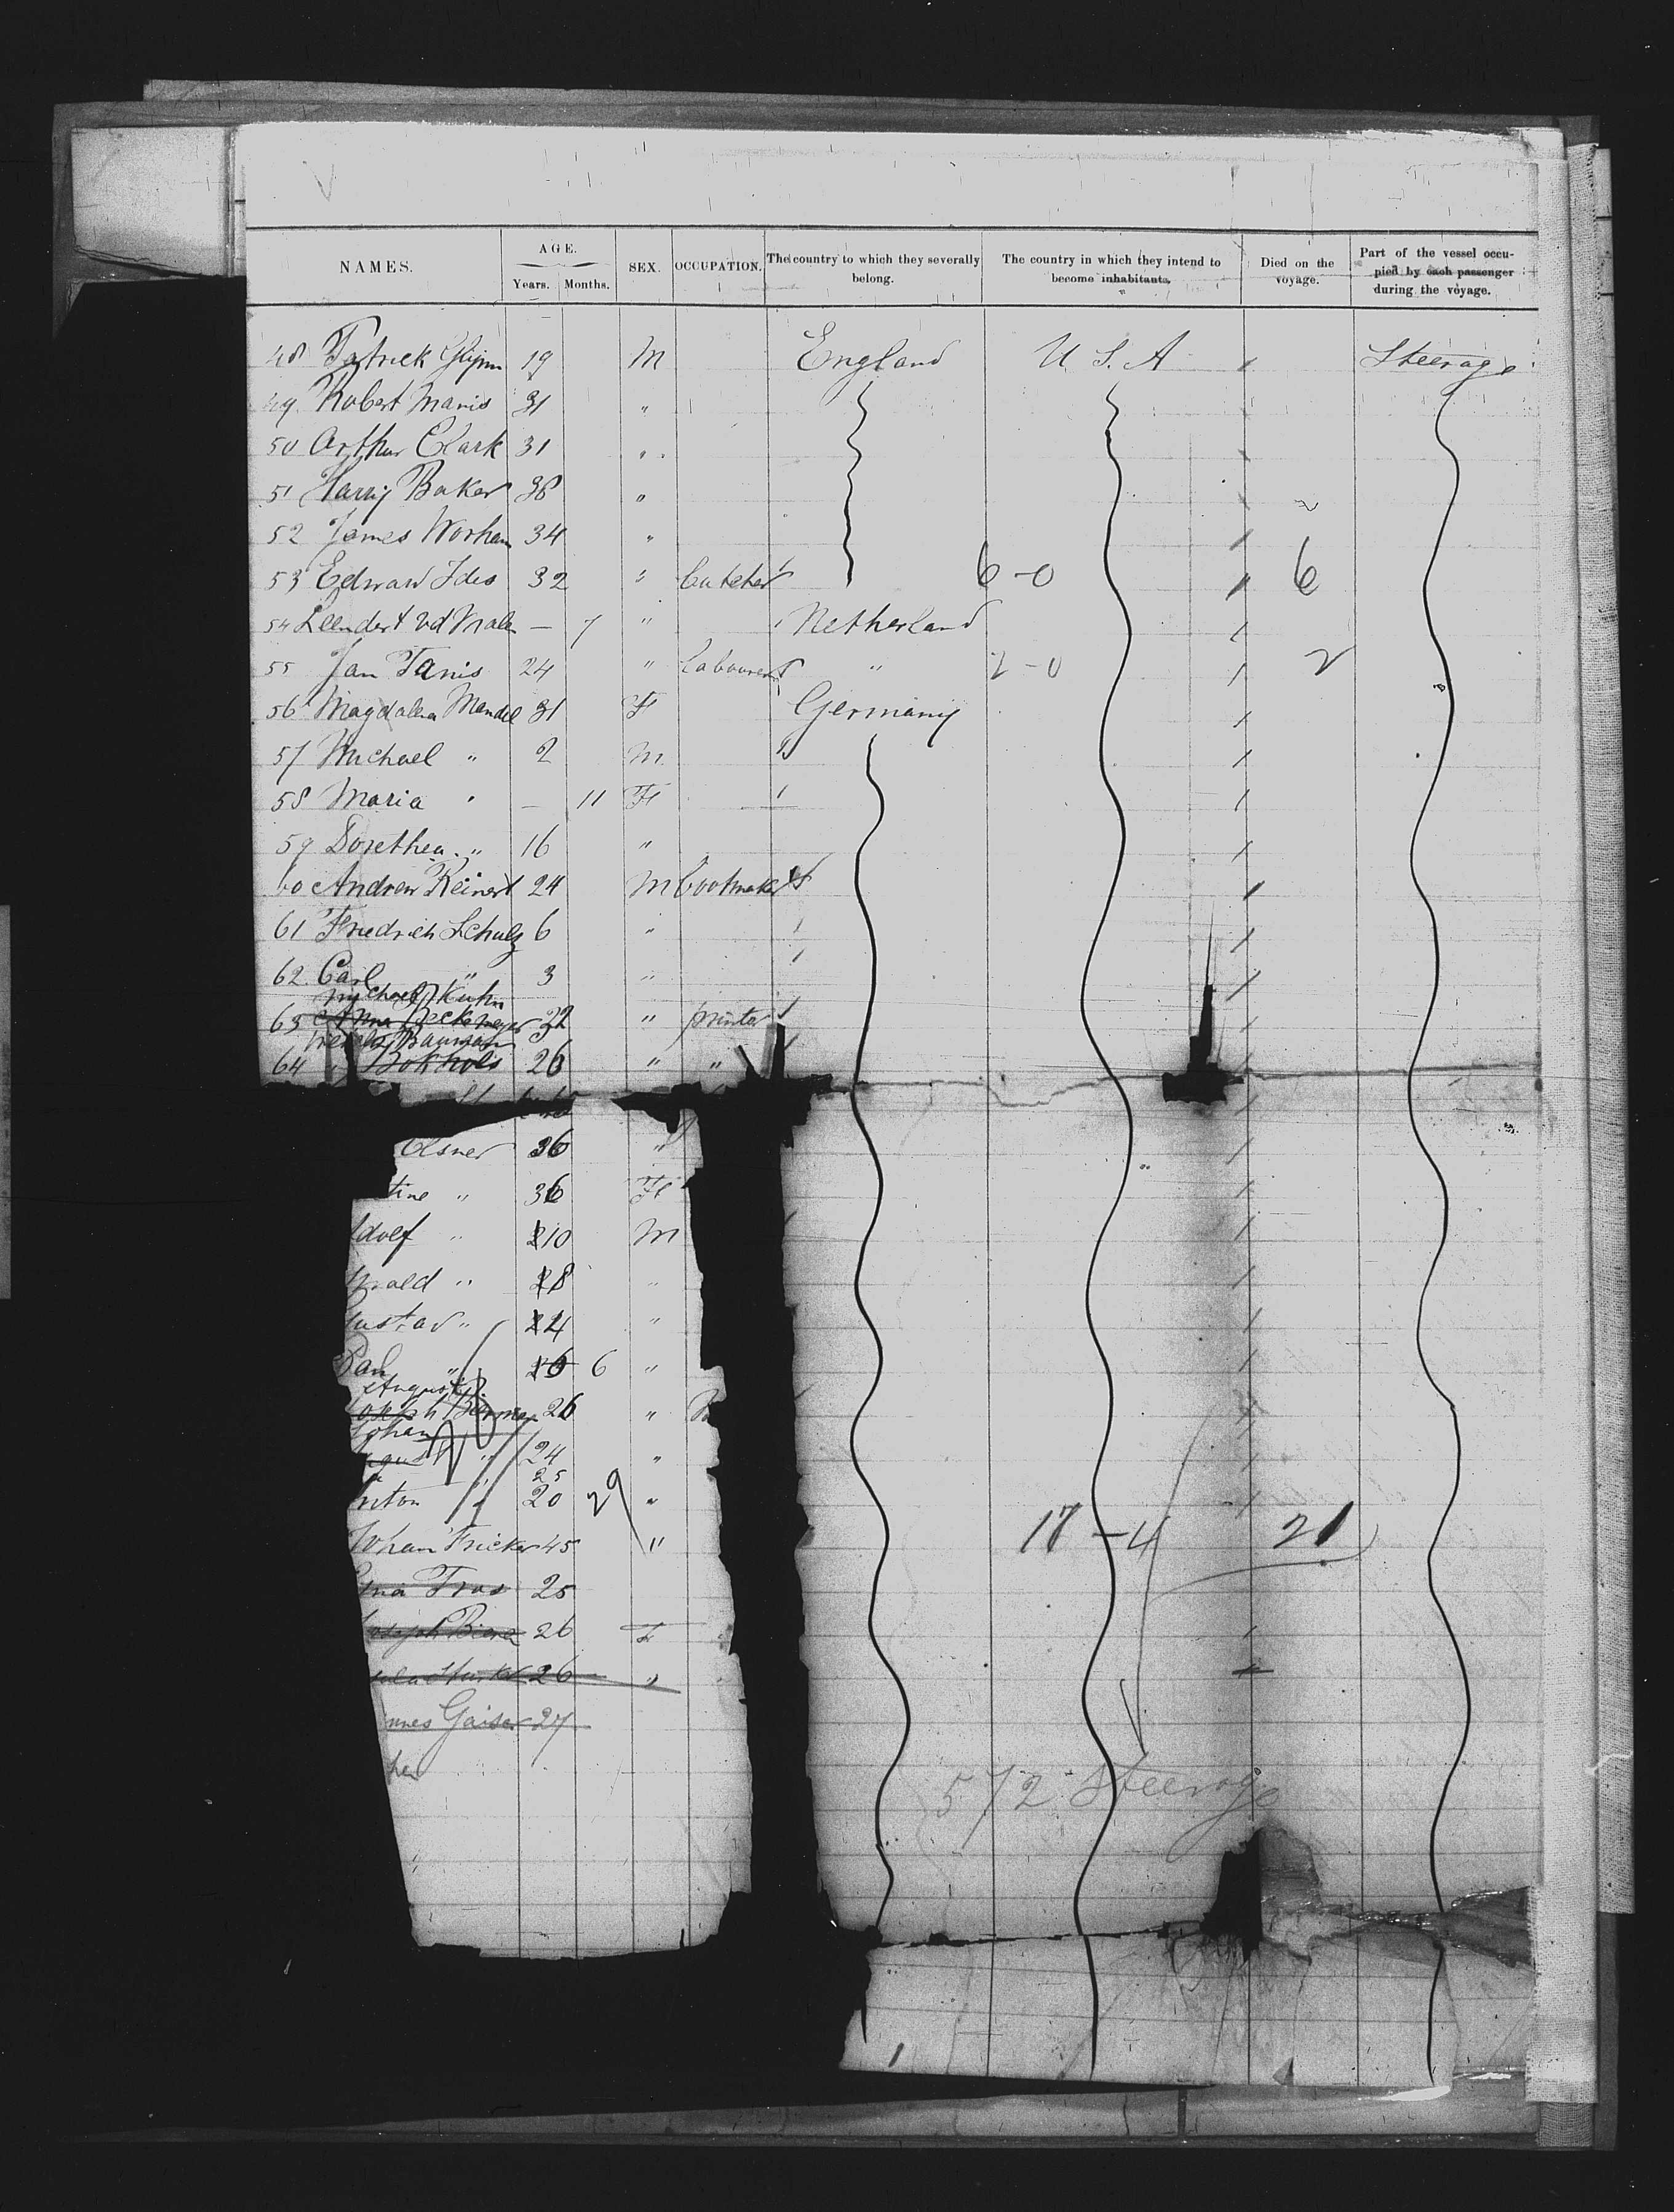 NAMES. AGE. Years. Months. SEX. OCCUPATION. The country to which they severally belong. The country in which they intend to become inhabitants. Died on the voyage. Part of the vessel occupied by each passenger during the voyage.
48 Patrick Glynn 19 M England U S. A Steerage
49 Robert Manis 31 "
50 Arthur Clark 31 "
51 Harry Baker 38 "
52 James Worham 34 "
53 Edward Ides 32 " butcher 6-0 6
54 Leendert vd — 7 " Netherland
55 Jan Tanis 24 " labourer " 2-0 2
56 Magdalena Mandel 31 F Germany
57 Michael " 2 M
58 Maria " — 11 F
59 Dorethea " 16 "
60 Andrew Reinert 24 M bootmaker
61 Friedrich Schulz 6 "
62 Carl " 3 "
Michael Kuhn
63 Anna Beckmeyer 32 " printer
Bauman
64 " Bokhols 26 " "
Elsner 36 "
tine " 36 F
dolf " 10 M
wald " 8 "
ustav " 4 "
Paul " 6 "
August
oseph 26 "
Johan
ugust " 24 "
25
nton " 20 29 "
Johann Fricker 45 " 17-4 21
25
oseph 26 F
26 "
nnes Gaiser 27
572 Steerage